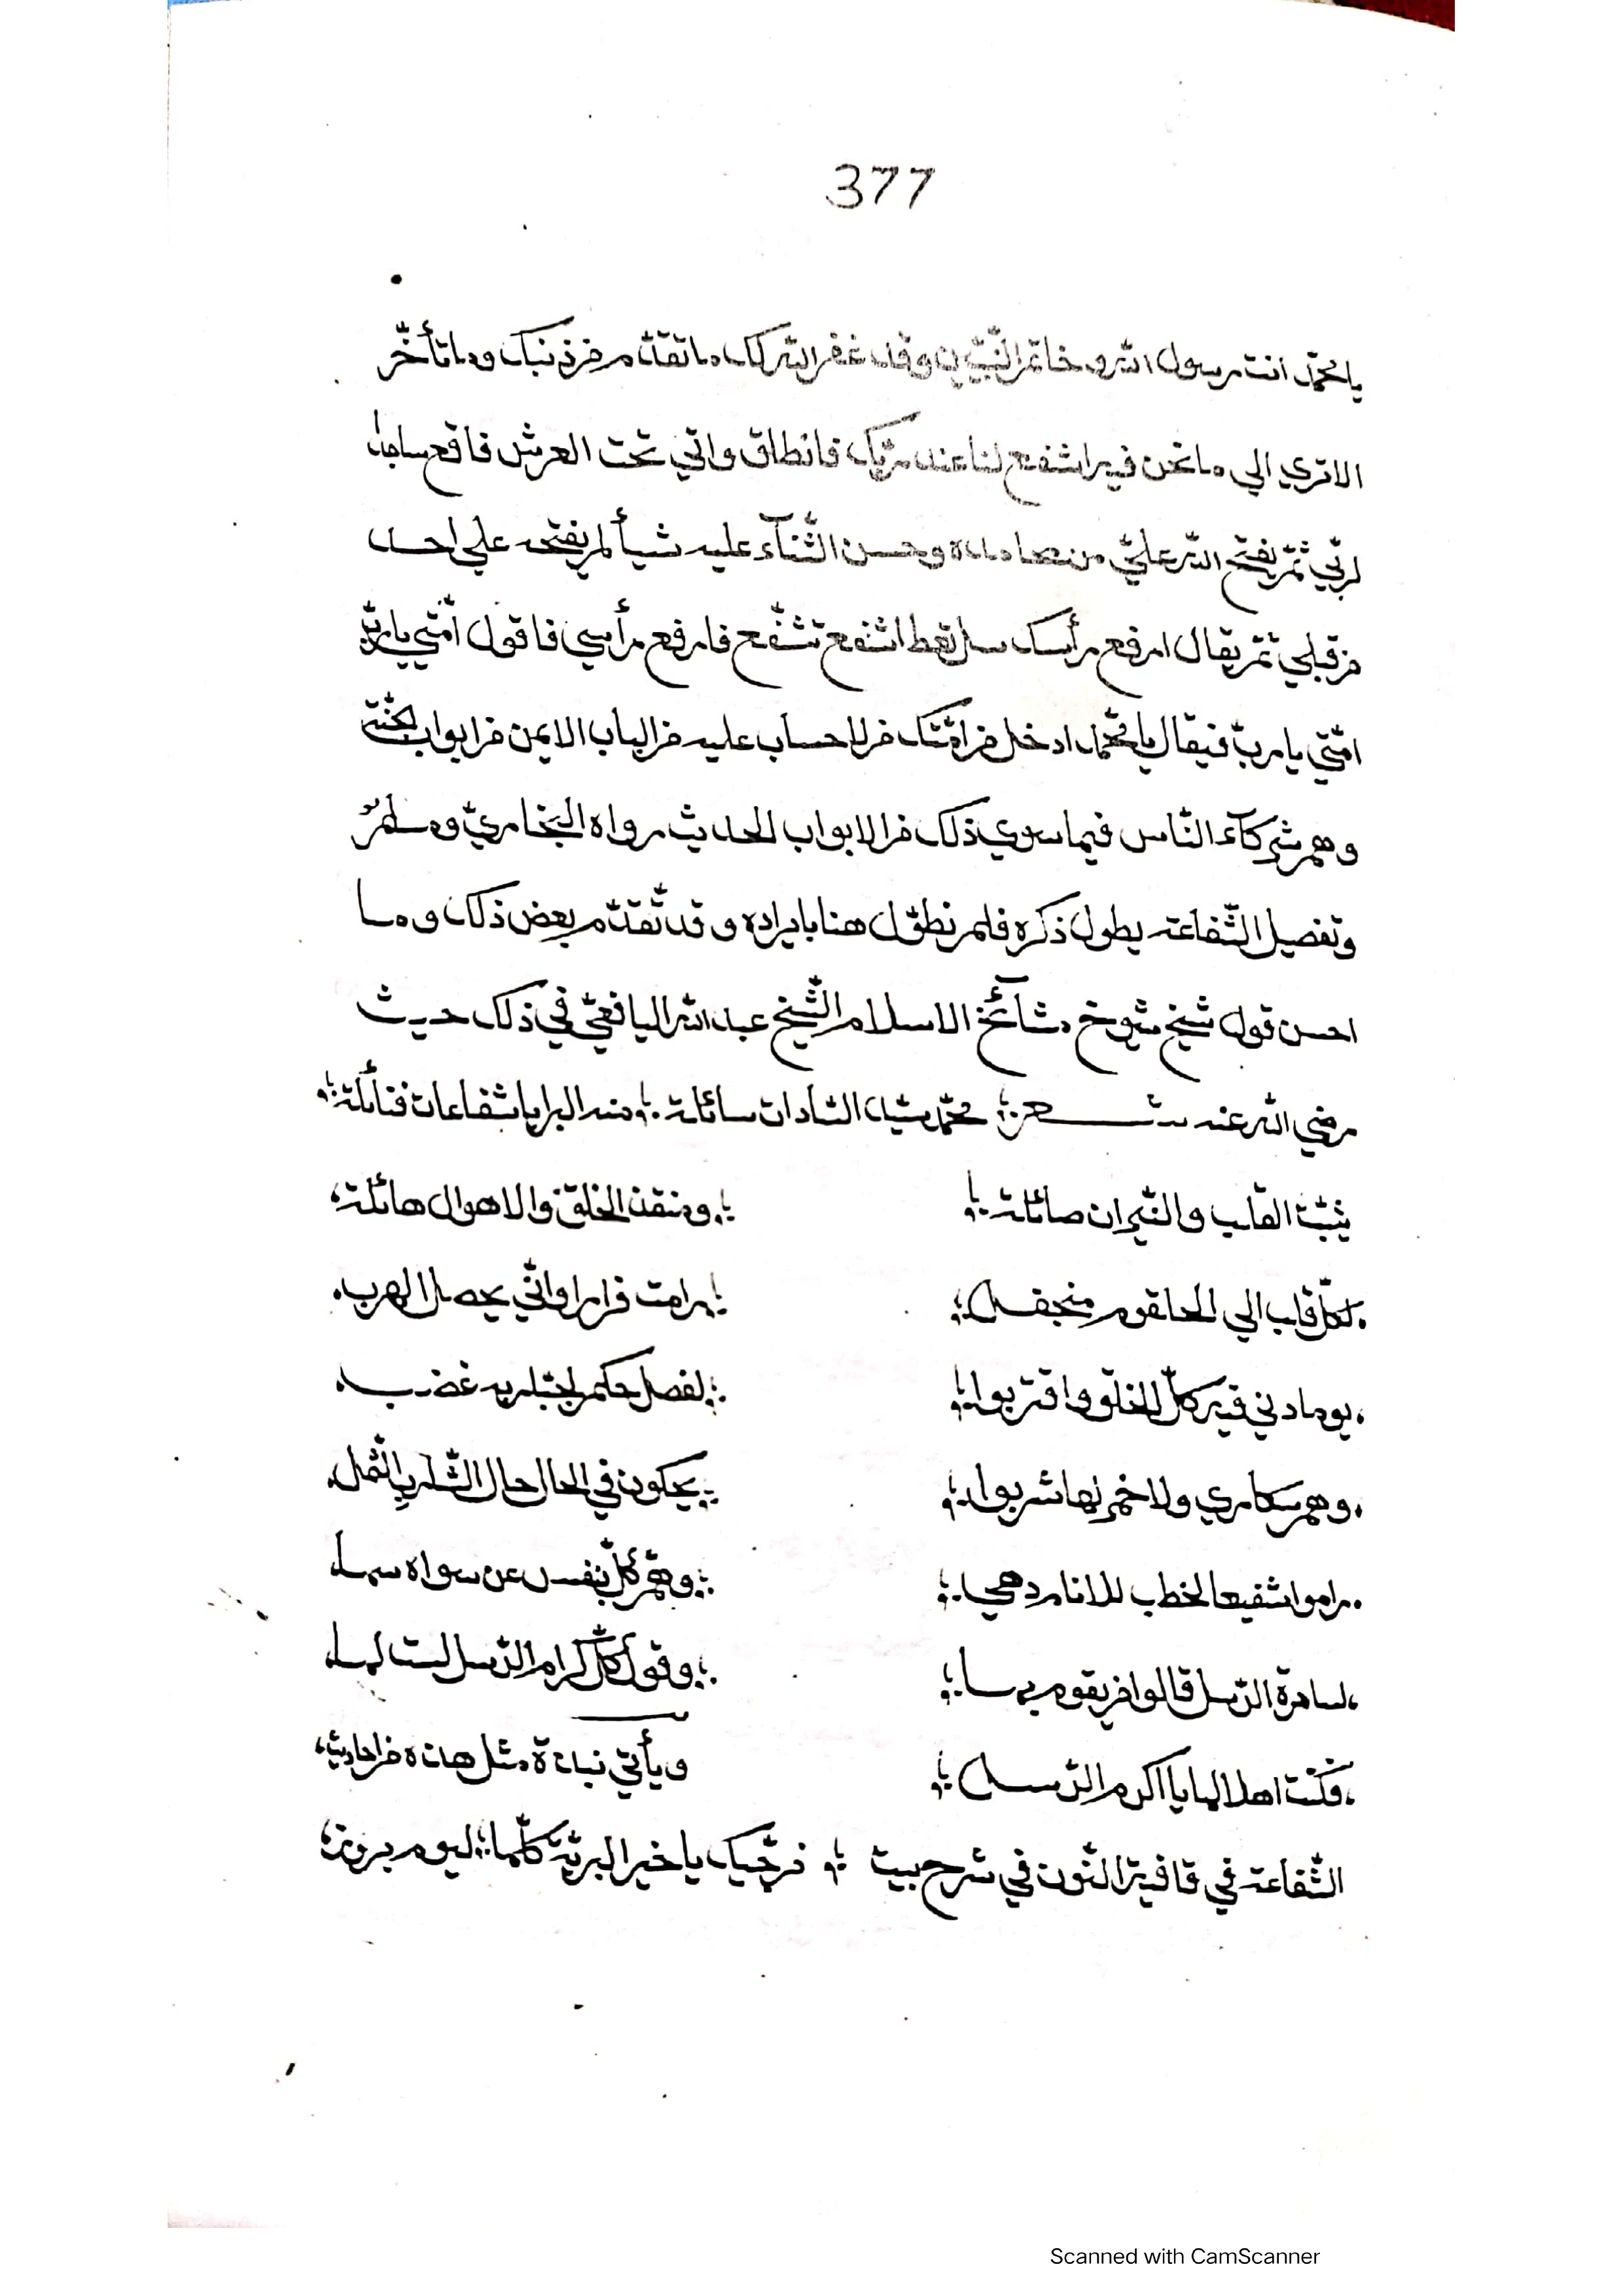 377
يا محمّد انت رسول الله وخاتم النّبيّين وقد غفر الله لك ما تقدّم من ذنبك وما تأخّر
الا تري الي ما نحن فيه اشفع لنا عند ربّك فانطلق واتي تحت العرش فاقع ساجدا
لربّي ثمّ يفتح الله عليّ من محامده وحسن الثّنآء عليه شيأ لم يفتحه علي احد
من قبلي ثمّ يقال ارفع رأسك سل تعط اشفع تشفّع فارفع رأسي فاقول امّتي يا ربّ
امّتي يا ربّ فيقال يا محمّد ادخل من امّتك من لا حساب عليه من الباب الايمن من ابواب الجنّة
وهم شركآء النّاس فيما سوي ذلك من الابواب الحديث رواه البخاريّ ومسلمٌ
وتفصيل الشّفاعة يطول ذكره فلم نطوّل هنا بايراده وقد تقدّم بعض ذلك وما
احسن قول شيخ شيوخ مشآئخ الاسلام الشّيخ عبد الله اليافعيّ في ذلك حيث
رضي الله عنه شعر؛ محمّد سيّد السّادات سائلة ؛ منه البرايا شفاعات فنائلة؛
يثبّت القلب والنّيران صائلة ؛ ومنقذ الخلق والاهوال هائلة؛
لكلّ قلب الي الحلقوم منجفل ؛ رامت فرارا وانّي يحصل الهرب
يوما دني فيه كلّ الخلق واقتربوا ؛ لفصل حكم لجبّار به غضب
وهم سكاري ولا خمر لها شربوا ؛ يحكون في الحال حال الشّارب الثّمل
راموا شفيعا لخطب للانام دهي ؛ وهمّ كلّ بنفس عن سواه سها
لسادة الرّسل قالوا من يقوم بها ؛ وقول كلّ كرام الرّسل لست لها
فكنت اهلا لها يا اكرم الرّسل ؛ ويأتي نبذة مثل هذه من احاديث
الشّفاعة في قافية النّون في شرح بيت ؛ نرجّيك يا خير البريّة كلّها؛ ليوم بروز؛
Scanned with CamScanner